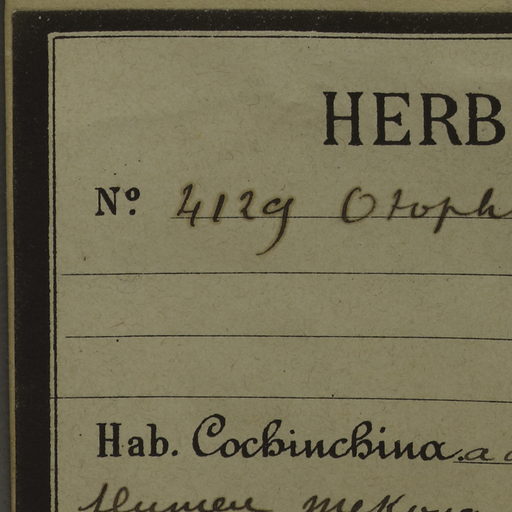 HERB
Nº. 4129 Otoph
Hab. Cochinchina. a
flumen mekong